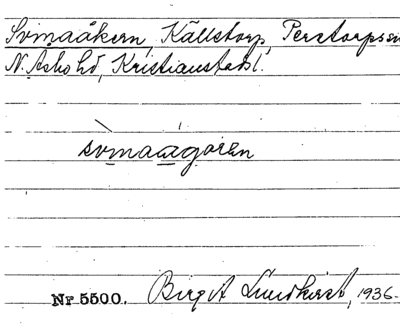 Svinaåkern, Källstorp, Perstorps sn
N. Åsbo hd, Kristianstads l.
Nr. 5500. Birgit Lundkvist, 1936.